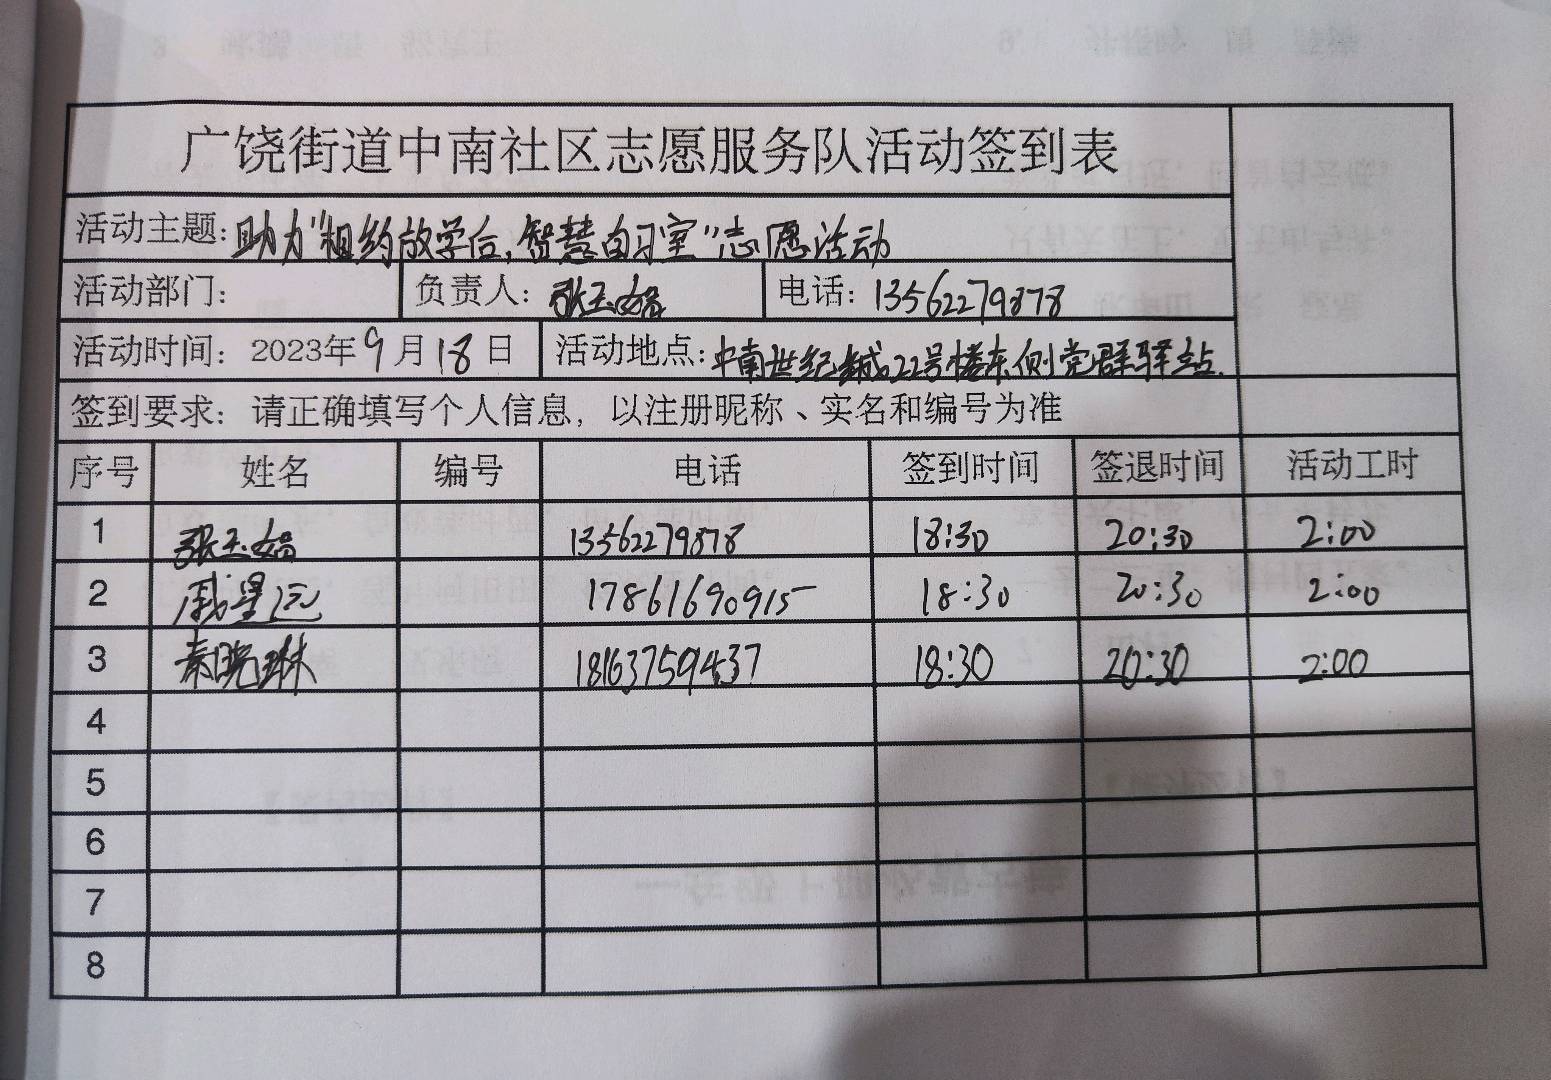 广饶街道中南社区志愿服务队活动签到表
活动主题:助力"相约放学后,智慧自习室"志愿活动
活动部门: 负责人:张玉娟 电话:13562279878
活动时间:2023年9月18日 活动地点:中南世纪城22号楼东侧党群驿站.
签到要求:请正确填写个人信息,以注册昵称、实名和编号为准
序号 姓名 编号 电话 签到时间 签退时间 活动工时
1 张玉娟 13562279878 18:30 20:30 2:00
2 戚星远 17861690915 18:30 20:30 2:00
3 秦晓琳 18163759437 18:30 20:30 2:00
4
5
6
7
8